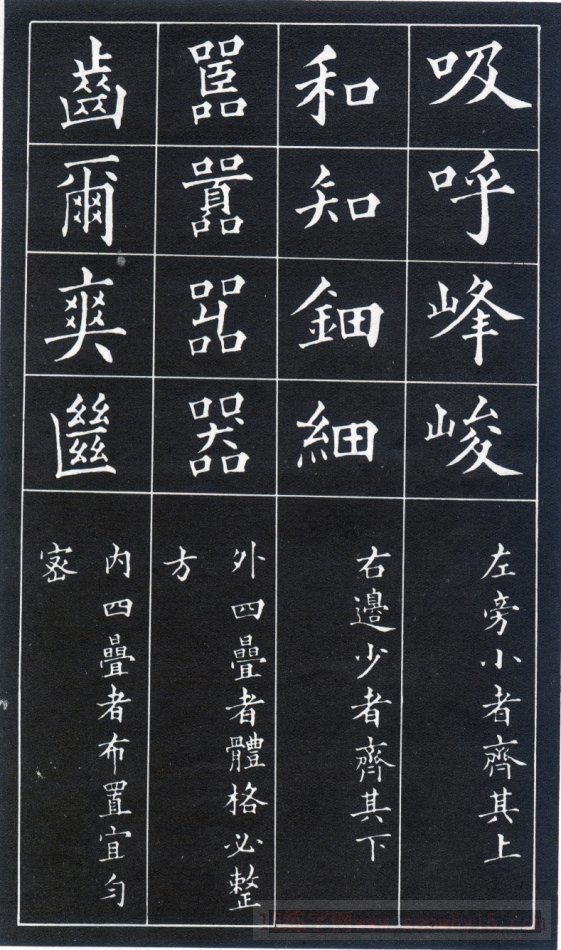 吸
呼
峰
峻
左旁小者齊其上
和
知
鈿
細
右邊少者齊其下
嚚
囂
嘂
器
外四疊者體格必整
方
齒
爾
爽
㡭
內四疊者布置宜勻
密